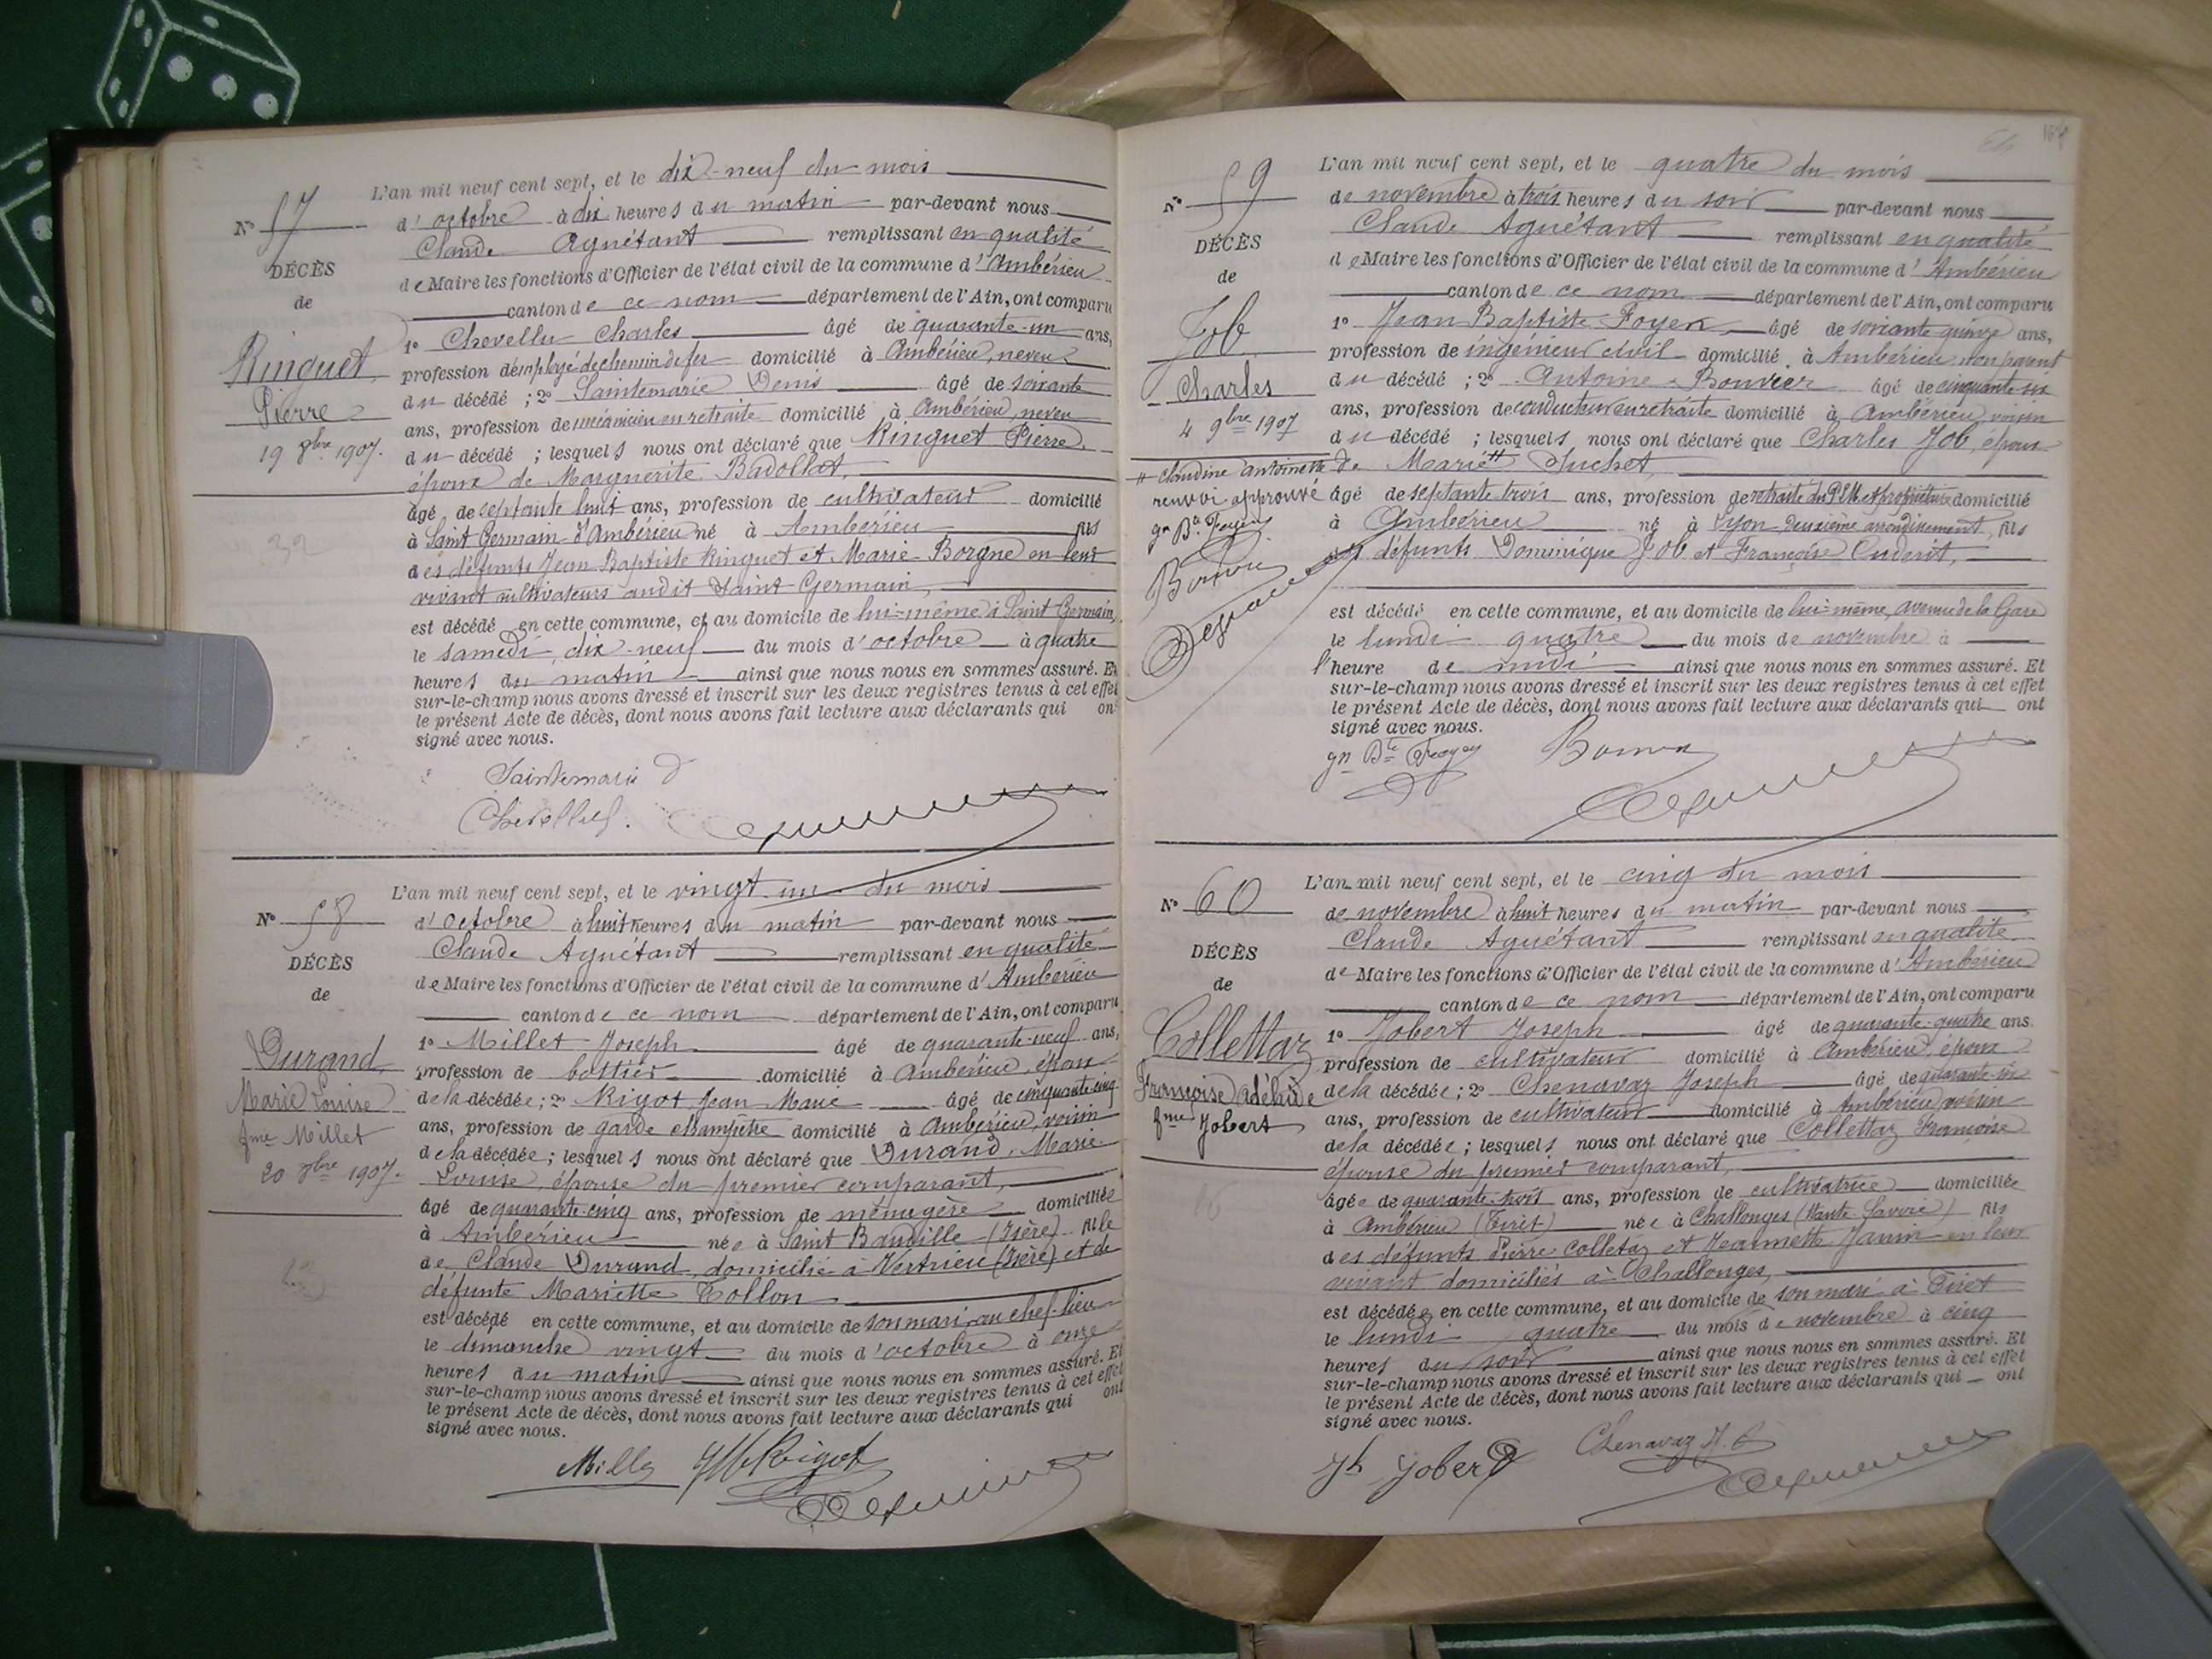 N° 57
DÉCÈS
de
Ringuet
Pierre
19 8bre 1907.
L'an mil neuf cent sept, et le dix-neuf du mois
d'octobre à dix heures du matin par-devant nous
Claude Aguétant remplissant en qualité
de Maire les fonctions d'Officier de l'état civil de la commune d'Ambérieu
canton de ce nom département de l'Ain, ont comparu
1° Chevellu Charles âgé de quarante-un ans,
profession d'employé de chemin de fer domicilié à Ambérieu, neveu
du décédé ; 2° Saintemarie Denis âgé de soixante
ans, profession de mécanicien en retraite domicilié à Ambérieu, neveu
du décédé ; lesquels nous ont déclaré que Ringuet Pierre,
époux de Marguerite Badollat,
âgé de septante huit ans, profession de cultivateur domicilié
à Saint Germain d'Ambérieu né à Ambérieu fils
des défunts Jean Baptiste Ringuet et Marie Borgne en leur
vivant cultivateurs audit Saint Germain,
est décédé en cette commune, et au domicile de lui-même à Saint Germain,
le samedi, dix-neuf du mois d'octobre à quatre
heures du matin ainsi que nous nous en sommes assuré. Et
sur-le-champ nous avons dressé et inscrit sur les deux registres tenus à cet effet
le présent Acte de décès, dont nous avons fait lecture aux déclarants qui ont
signé avec nous.
Saintemarie D
N° 58
DÉCÈS
de
Durand
Marie Louise
fme Millet
20 8bre 1907.
L'an mil neuf cent sept, et le vingt-un du mois
d'octobre à huit heures du matin par-devant nous
Claude Aguétant remplissant en qualité
de Maire les fonctions d'Officier de l'état civil de la commune d'Ambérieu
canton de ce nom département de l'Ain, ont comparu
1° Millet Joseph âgé de quarante-neuf ans,
profession de bottier domicilié à Ambérieu, époux
de la décédée ; 2° Rigot Jean Marie âgé de cinquante-cinq
ans, profession de garde champêtre domicilié à Ambérieu, voisin
de la décédée ; lesquels nous ont déclaré que Durand, Marie
Louise, épouse du premier comparant,
âgé de quarante-cinq ans, profession de ménagère domiciliée
à Ambérieu née à Saint Baudille (Isère) fille
de Claude Durand, domicilié à Vertrieu (Isère) et de
défunte Mariette Tollon
est décédé en cette commune, et au domicile de son mari, au chef-lieu
le dimanche vingt du mois d'octobre à onze
heures du matin ainsi que nous nous en sommes assuré. Et
sur-le-champ nous avons dressé et inscrit sur les deux registres tenus à cet effet
le présent Acte de décès, dont nous avons fait lecture aux déclarants qui ont
signé avec nous.
Millet JM Rigot
164
N° 59
DÉCÈS
de
Job
Charles
4 9bre 1907
# Claudine Antoinette
renvoi approuvé
L'an mil neuf cent sept, et le quatre du mois
de novembre à trois heures du soir par-devant nous
Claude Aguétant remplissant en qualité
de Maire les fonctions d'Officier de l'état civil de la commune d'Ambérieu
canton de ce nom département de l'Ain, ont comparu
1° Jean Baptiste Foyer âgé de soixante-quinze ans,
profession de ingénieur civil domicilié à Ambérieu non parent
du décédé ; 2° Antoine Bouvier âgé de cinquante six
ans, profession de conducteur en retraite domicilié à Ambérieu, voisin
du décédé ; lesquels nous ont déclaré que Charles Job, époux
de Marie # Suchet,
âgé de septante-trois ans, profession de retraité du PLM et propriétaire domicilié
à Ambérieu né à Lyon deuxième arrondissement, fils
des défunts Dominique Job et Françoise Cuderit,
est décédé en cette commune, et au domicile de lui-même, avenue de la Gare
le lundi quatre du mois de novembre à
l'heure de midi ainsi que nous nous en sommes assuré. Et
sur-le-champ nous avons dressé et inscrit sur les deux registres tenus à cet effet
le présent Acte de décès, dont nous avons fait lecture aux déclarants qui ont
signé avec nous.
N° 60
DÉCÈS
de
Collettaz
Françoise Adélaïde
fme Jobert
L'an mil neuf cent sept, et le cinq du mois
de novembre à huit heures du matin par-devant nous
Claude Aguétant remplissant en qualité
de Maire les fonctions d'Officier de l'état civil de la commune d'Ambérieu
canton de ce nom département de l'Ain, ont comparu
1° Jobert Joseph âgé de quarante-quatre ans
profession de cultivateur domicilié à Ambérieu, époux
de la décédée ; 2° Chenavaz Joseph âgé de quarante-un
ans, profession de cultivateur domicilié à Ambérieu voisin
de la décédée ; lesquels nous ont déclaré que Collettaz Françoise
épouse du premier comparant,
âgée de quarante-trois ans, profession de cultivatrice domiciliée
à Ambérieu (Tiret) née à Challonges (Haute-Savoie) fils
des défunts Pierre Colletaz et Jeannette Janin en leur
vivant domiciliés à Challonges,
est décédée en cette commune, et au domicile de son mari à Tiret
le lundi quatre du mois de novembre à cinq
heures du soir ainsi que nous nous en sommes assuré. Et
sur-le-champ nous avons dressé et inscrit sur les deux registres tenus à cet effet
le présent Acte de décès, dont nous avons fait lecture aux déclarants qui ont
signé avec nous.
Jh Jobert Chenavaz J.